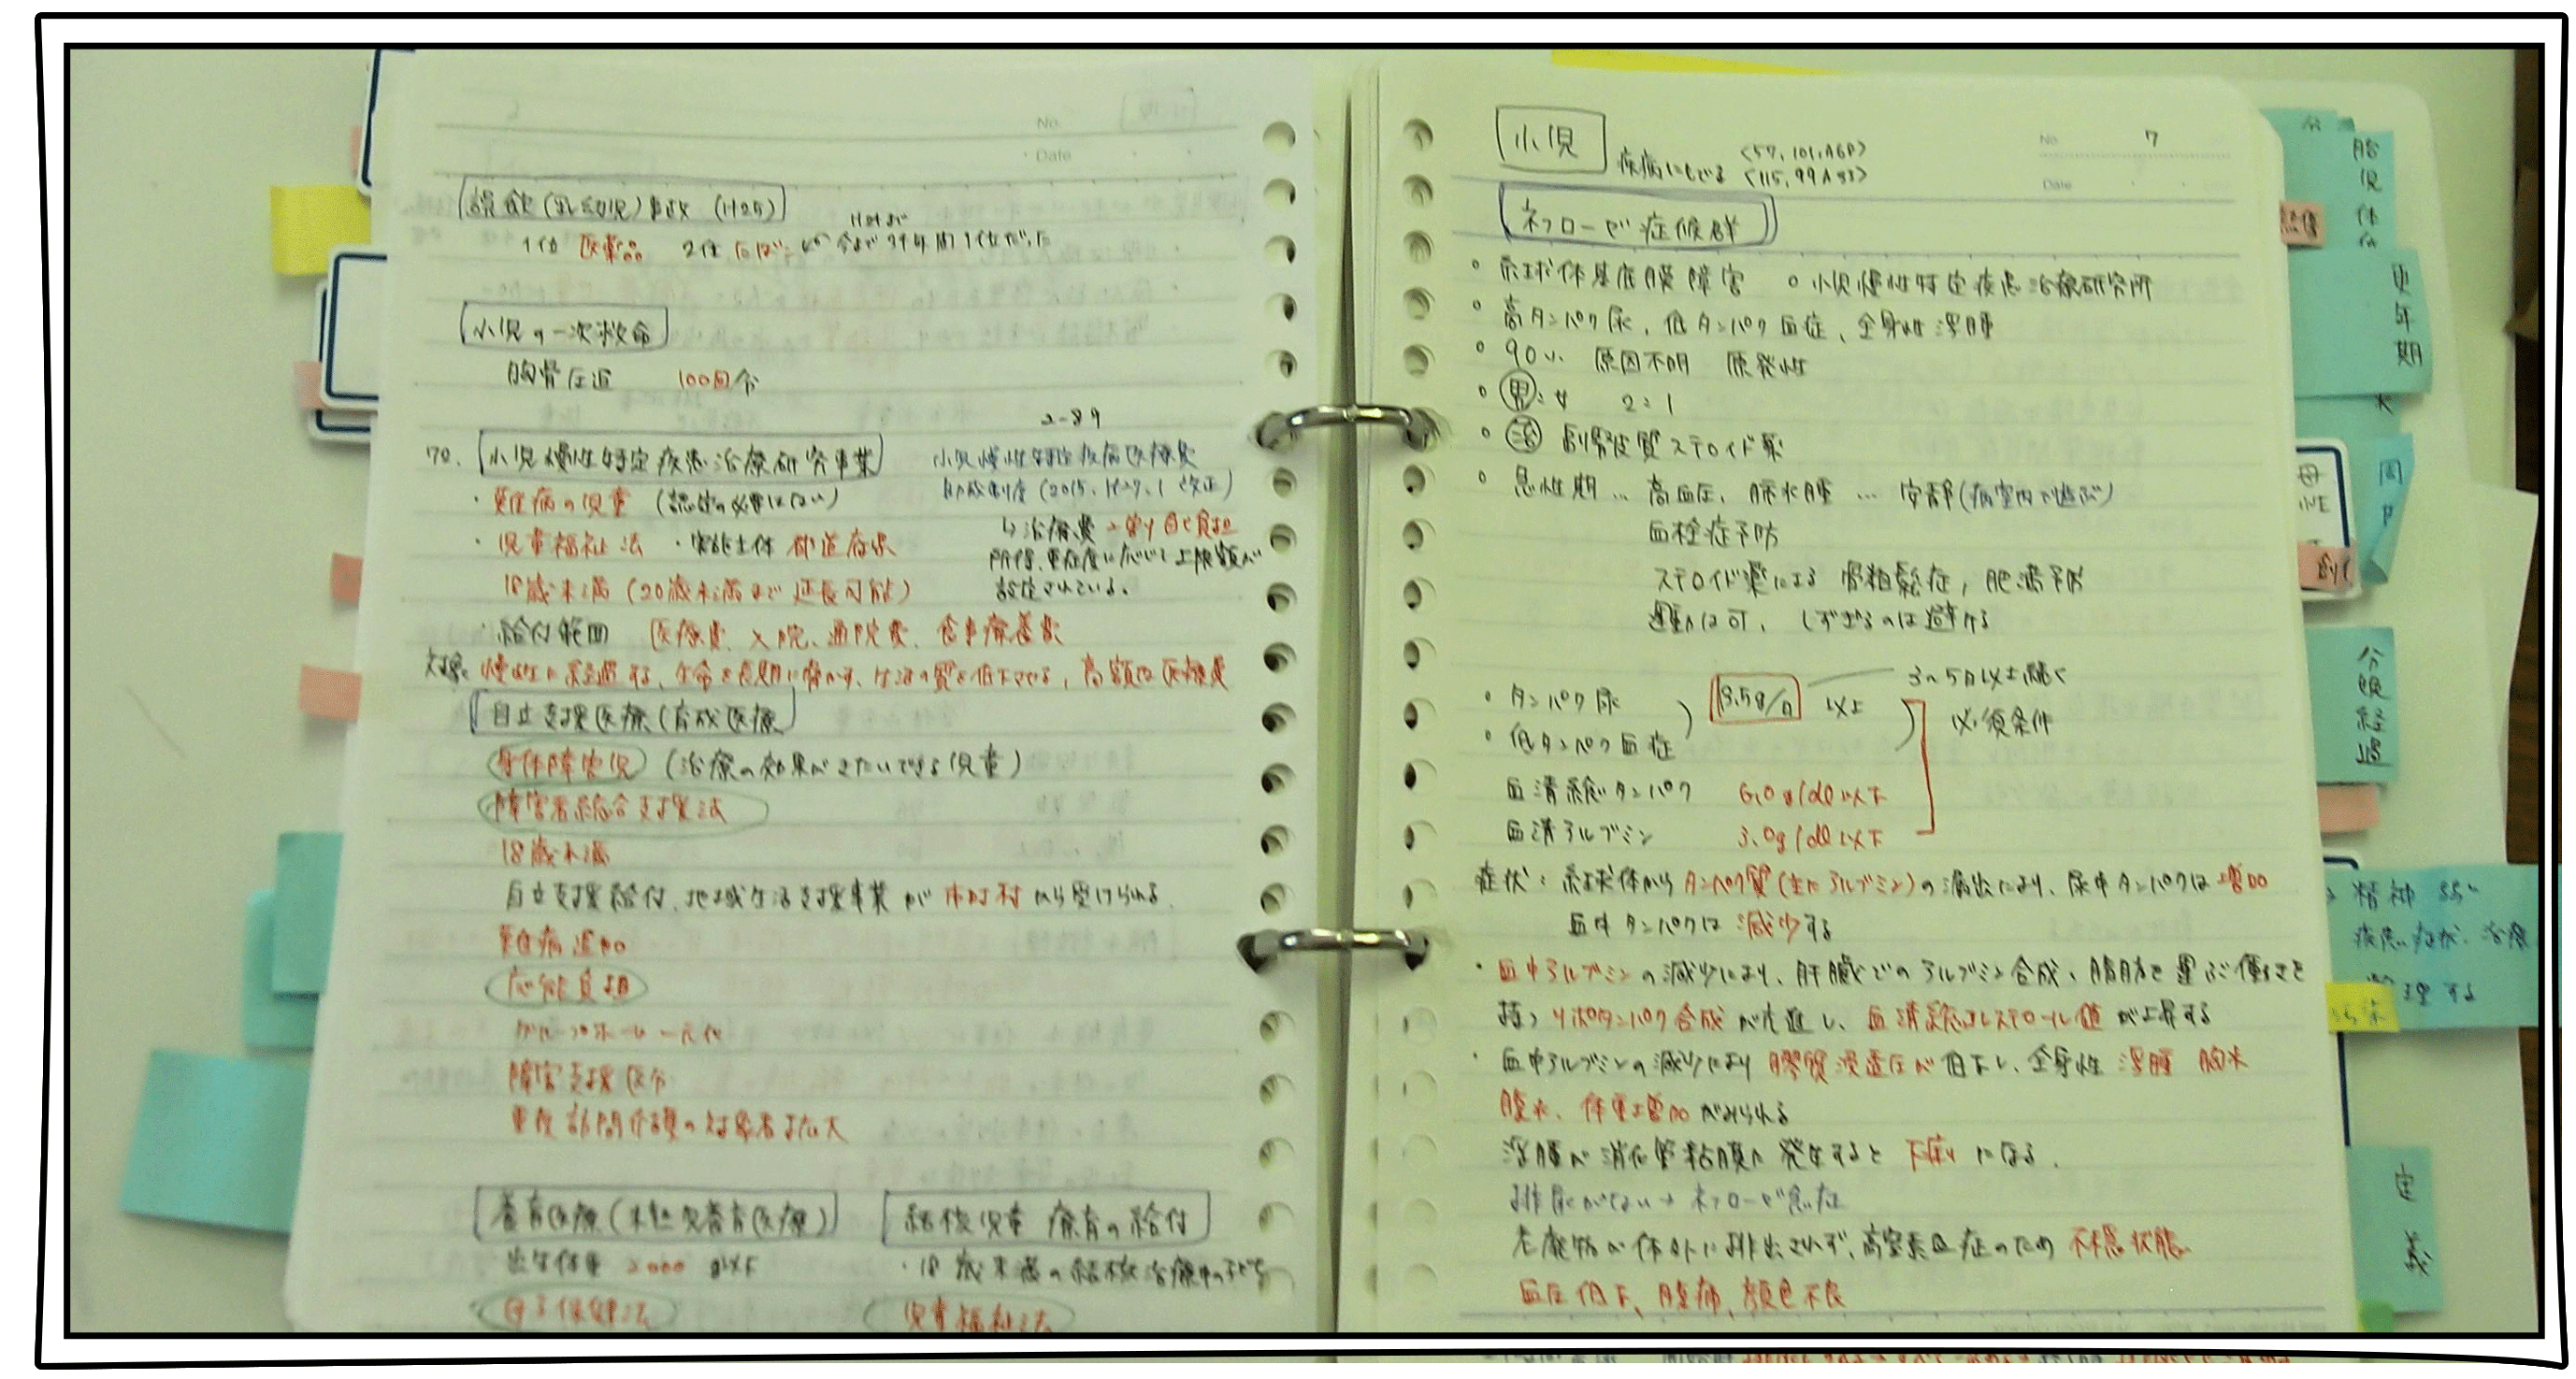 No.
Date
誤飲(乳幼児)事故 (H25)
1位 医薬品 2位 たばこ
小児の一次救命
胸骨圧迫 100回/分
2-89
70. 小児慢性特定疾患治療研究事業
小児慢性特定疾病医療費
助成制度(2015、H27、1 改正)
・難病の児童 (認定の必要はない)
↳治療費 2割自己負担
・児童福祉法 ・実施主体 都道府県
所得、重症度に応じて上限額が
設定されている。
18歳未満 (20歳未満まで延長可能)
・給付範囲 医療費、入院、通院費、食事療養費
対象: 慢性に経過する、生命を長期に脅かす、生活の質を低下させる、高額な医療費
自立支援医療(育成医療
身体障害児 (治療の効果がきたいできる児童)
障害者総合支援法
18歳未満
自立支援給付、地域生活支援事業が 市町村から受けられる.
難病追加
応能負担
グループホーム一元化
障害支援区分
重度訪問介護の対象者拡大
養育医療(未熟児養育医療)
出生体重 2000g以下
母子保健法
結核児童 療育の給付
・18歳未満の結核治療中の子ども
児童福祉法
小児
疾病にもでる <57、101、A6P>
<115、99A
No 7
Date
ネフローゼ症候群
○ 糸球体基底膜障害 ○ 小児慢性特定疾患治療研究所
○ 高タンパク尿、低タンパク血症、全身性浮腫
○ 90% 原因不明 原発性
○ 男:女 2:1
○ 治 副腎皮質ステロイド薬
○ 急性期… 高血圧、肺水腫 … 安静(病室内で遊ぶ)
血栓症予防
ステロイド薬による 骨粗鬆症、肥満予防
運動は可、しすぎるのは避ける
・タンパク尿 3.5g/日 以上 3〜5日以上続く
・低タンパク血症 必須条件
血清総タンパク 6.0g/dl以下
血清アルブミン 3.0g/dl以下
症状: 糸球体からタンパク質(主にアルブミン)の漏出により、尿中タンパクは増加
血中タンパクは減少する
・血中アルブミンの減少により、肝臓でのアルブミン合成、脂肪を運ぶ働きを
持つリポタンパク合成が亢進し、血清総コレステロール値が上昇する
・血中アルブミンの減少により膠質浸透圧が低下し、全身性浮腫 胸水
腹水、体重増加がみられる
浮腫が消化管粘膜に発生すると下痢になる.
排尿がない→ネフローゼ急症
老廃物が体外に排出されず、高窒素血症のため 不穏状態
血圧低下、腹痛、顔色不良
更年期
分娩経過
精神
疾患、症状、治療
整理する
定義